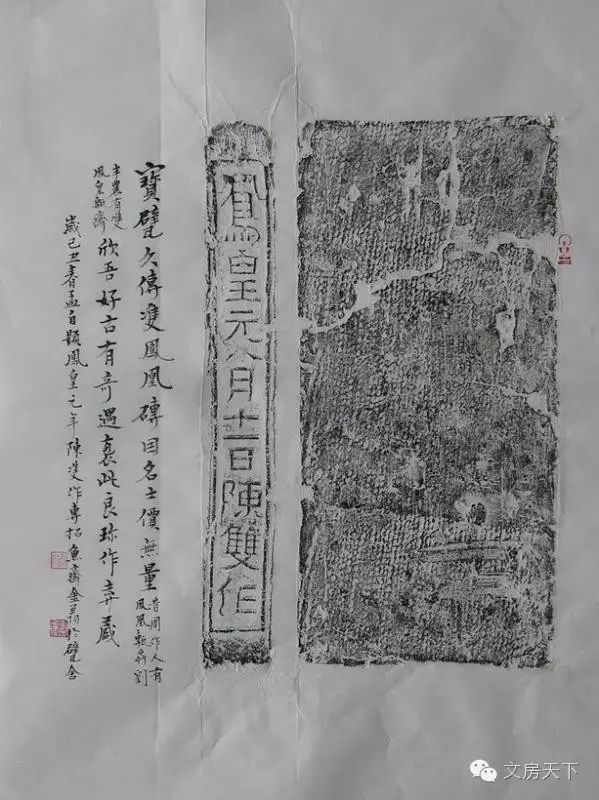 鳳皇元月日陳雙作
寶甓久傳雙鳳凰磚因名士價無量
昔周作人有
鳳凰甎齋劉
半農有雙
鳳皇甎齋
欣吾好古有奇遇裒此良珍作弆藏
歲己丑春孟自題鳳皇元年陳雙作專拓魚齋金於甓舍
文房天下